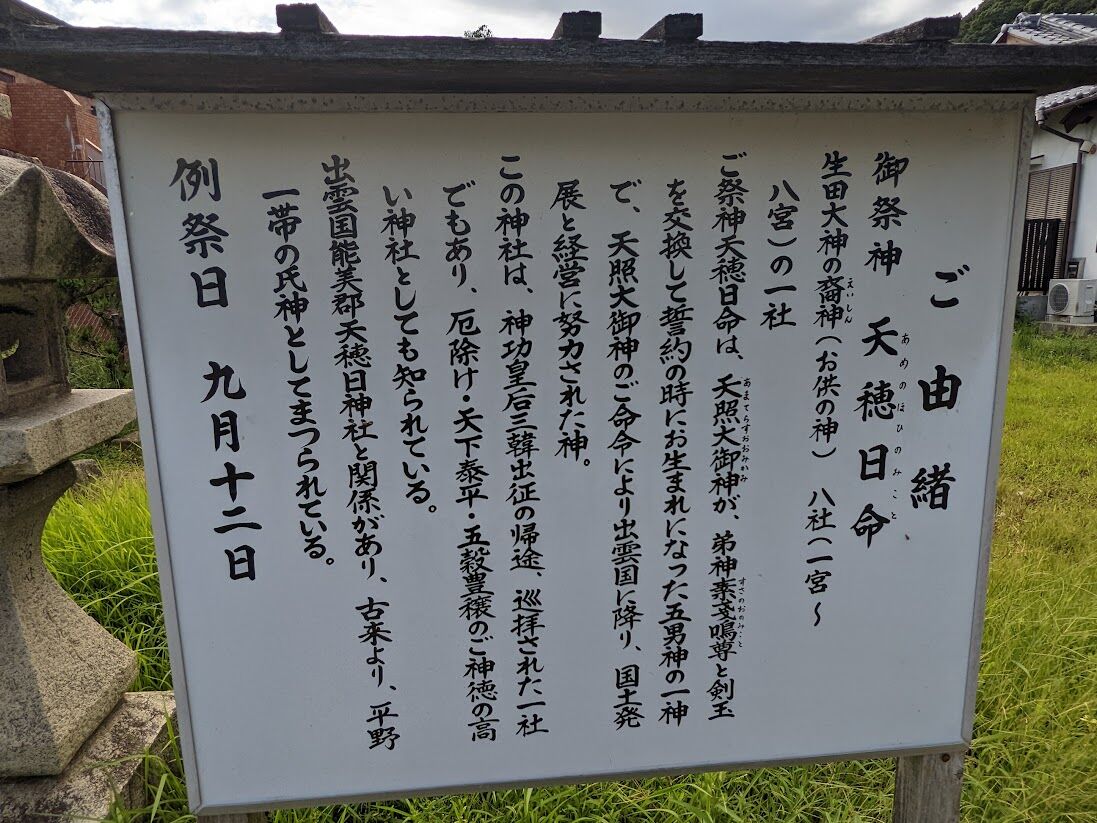 ご由緒
御祭神 天穂日命
あめのほひのみこと
生田大神の裔神(お供の神) 八社(一宮〜
えいしん
八宮)の一社
ご祭神天穂日命は、天照大御神が、弟神素戔嗚尊と剣玉
あまてらすおおみかみ
すさのおのみこと
を交換して誓約の時にお生まれになった五男神の一神
で、天照大御神のご命令により出雲国に降り、国土発
展と経営に努力された神。
この神社は、神功皇后三韓出征の帰途、巡拝された一社
でもあり、厄除け・天下泰平・五穀豊穣のご神徳の高
い神社としても知られている。
出雲国能美郡天穂日神社と関係があり、古来より、平野
一帯の氏神としてまつられている。
例祭日 九月十二日